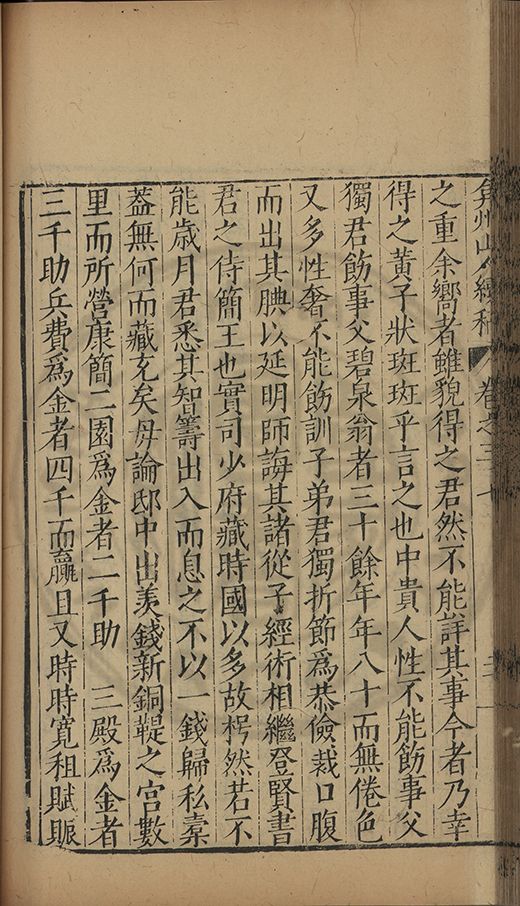 弇州山人續稿 卷之三十
之重余嚮者雖貌得之君然不能詳其事今者乃幸
得之黃子狀斑斑乎言之也中貴人性不能飭事父
獨君飭事父碧泉翁者三十餘年年八十而無倦色
又多性奢不能飭訓子弟君獨折節爲恭儉裁口腹
而出其腆以延明師誨其諸從子經術相繼登賢書
君之侍簡王也實司少府藏時國以多故枵然若不
能歲月君悉其智籌出入而息之不以一錢歸私橐
葢無何而藏充矣毋論邸中出羨錢新銅鞮之宮數
里而所營康簡二園爲金者二千助 三殿爲金者
三千助兵費爲金者四千而贏且又時時寬租賦賑